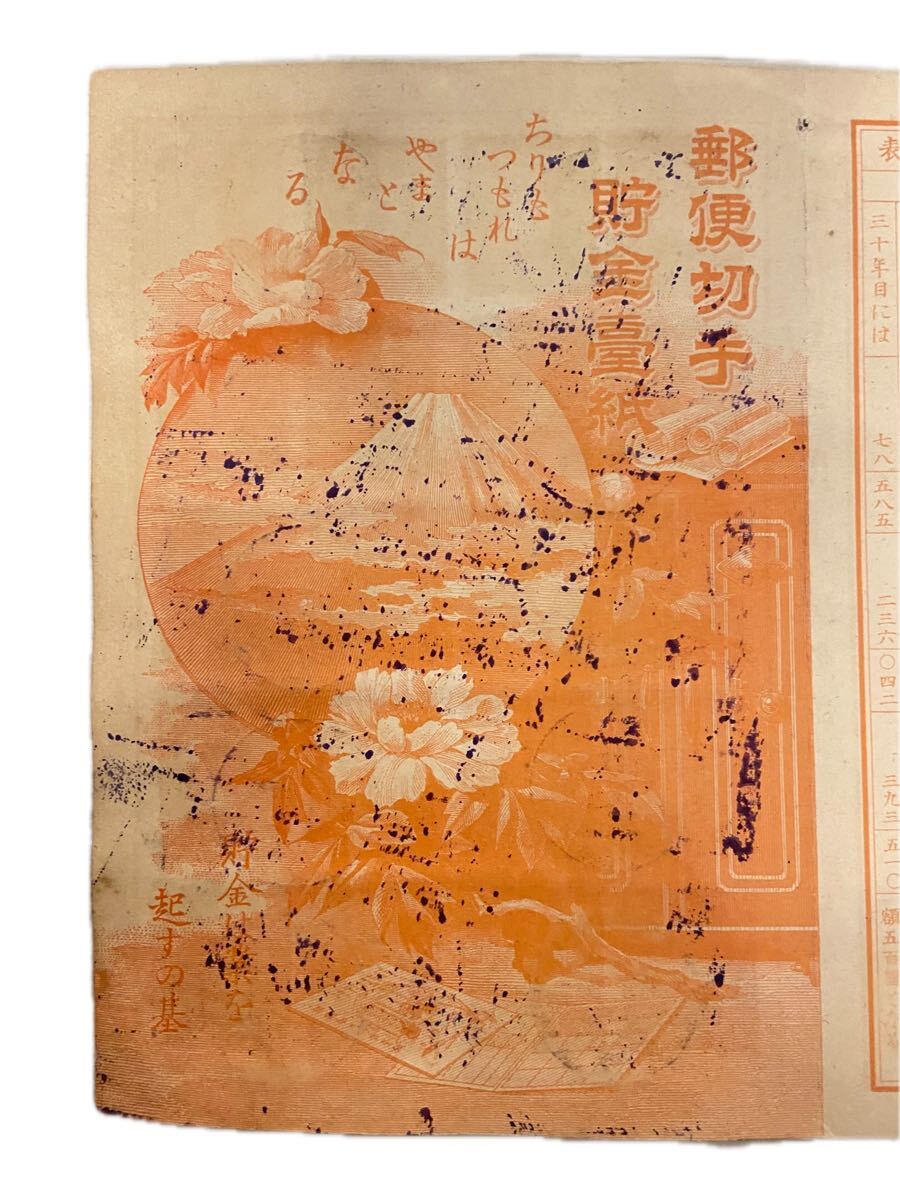 表
三十年目には
七八五八五
二三六〇四二
三九三五一〇
額五百
郵便切手
貯金臺紙
ちりも
つもれ
は
やま
と
な
る
貯金は家を
起すの基